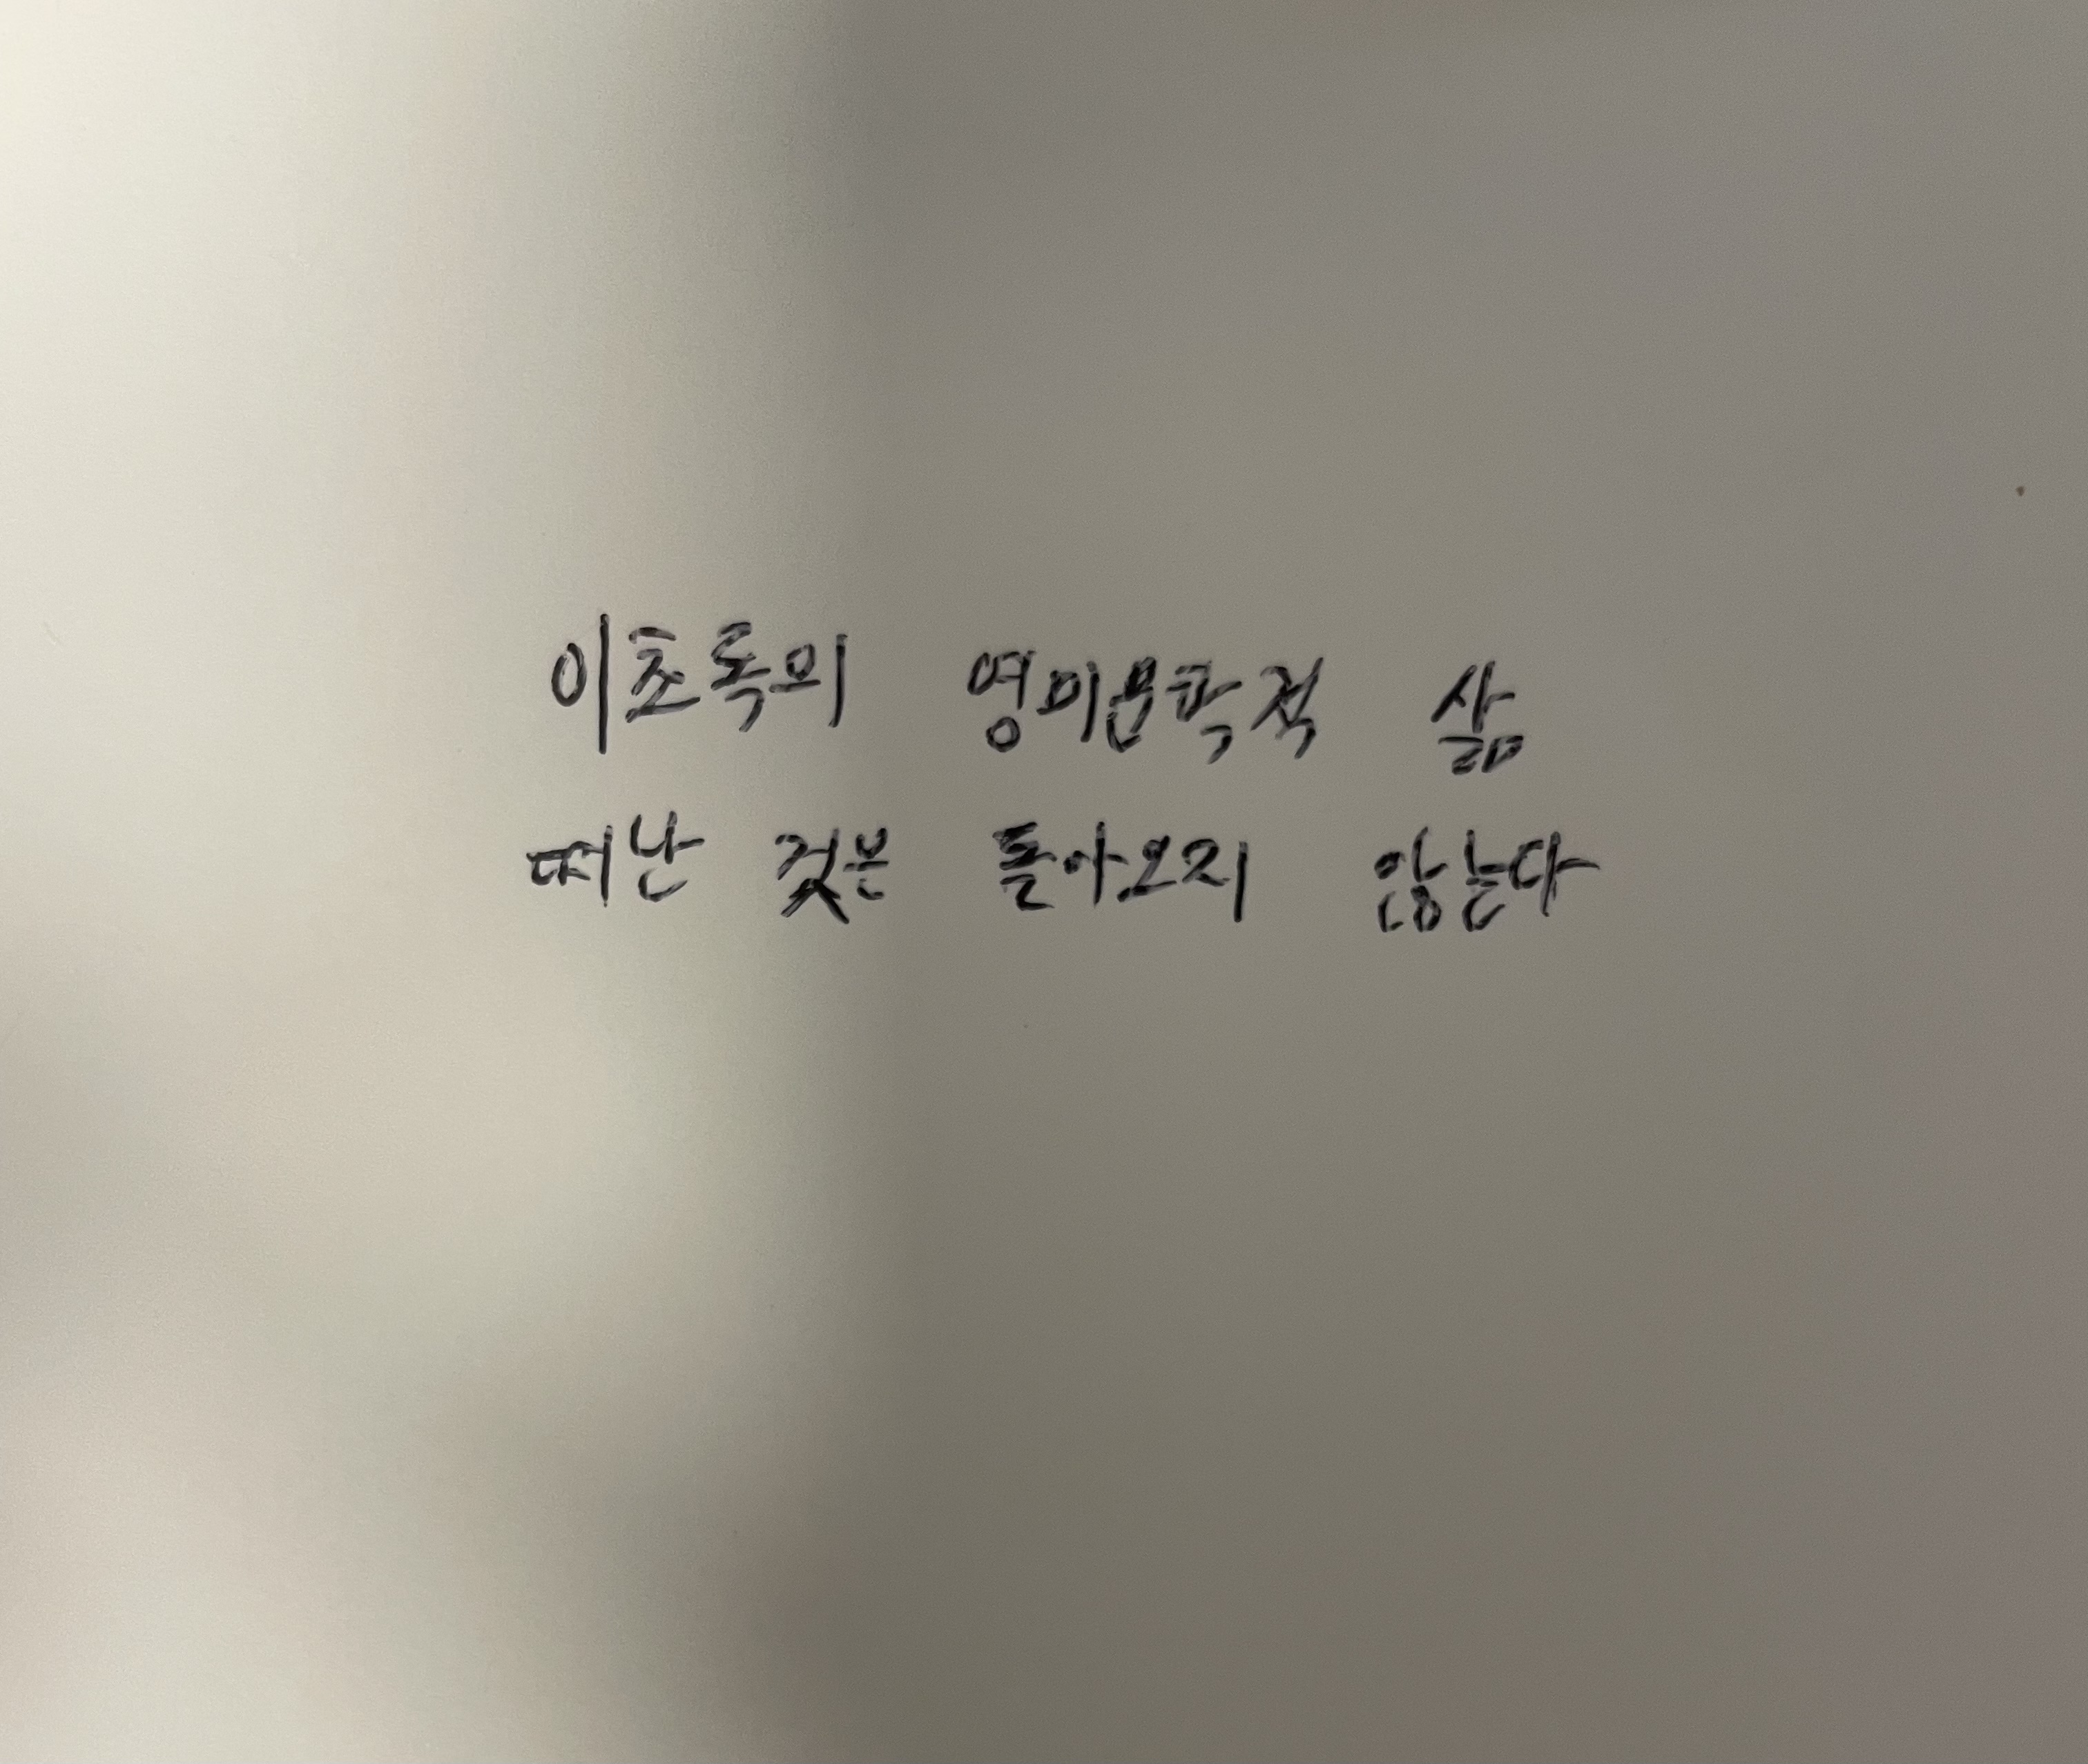 이초록의 영미문학적 삶
떠난 것은 돌아오지 않는다